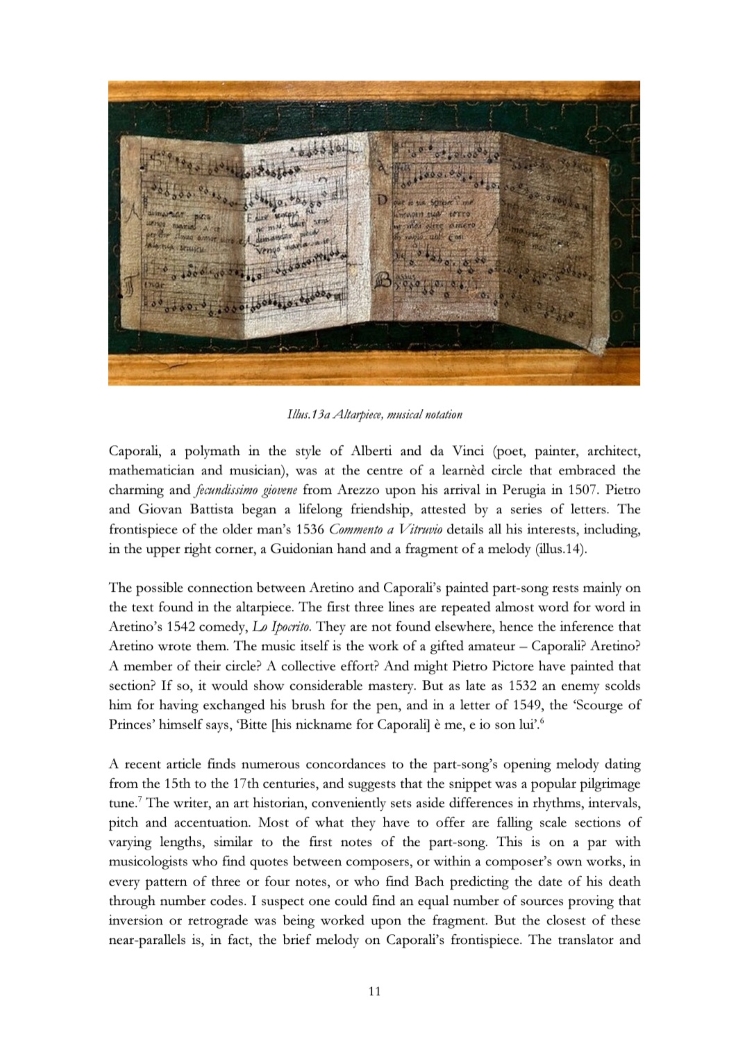 Illus.13a Altarpiece, musical notation
Caporali, a polymath in the style of Alberti and da Vinci (poet, painter, architect,
mathematician and musician), was at the centre of a learnèd circle that embraced the
charming and fecundissimo giovene from Arezzo upon his arrival in Perugia in 1507. Pietro
and Giovan Battista began a lifelong friendship, attested by a series of letters. The
frontispiece of the older man’s 1536 Commento a Vitruvio details all his interests, including,
in the upper right corner, a Guidonian hand and a fragment of a melody (illus.14).
The possible connection between Aretino and Caporali’s painted part-song rests mainly on
the text found in the altarpiece. The first three lines are repeated almost word for word in
Aretino’s 1542 comedy, Lo Ipocrito. They are not found elsewhere, hence the inference that
Aretino wrote them. The music itself is the work of a gifted amateur – Caporali? Aretino?
A member of their circle? A collective effort? And might Pietro Pictore have painted that
section? If so, it would show considerable mastery. But as late as 1532 an enemy scolds
him for having exchanged his brush for the pen, and in a letter of 1549, the ‘Scourge of
Princes’ himself says, ‘Bitte [his nickname for Caporali] è me, e io son lui’.⁶
A recent article finds numerous concordances to the part-song’s opening melody dating
from the 15th to the 17th centuries, and suggests that the snippet was a popular pilgrimage
tune.⁷ The writer, an art historian, conveniently sets aside differences in rhythms, intervals,
pitch and accentuation. Most of what they have to offer are falling scale sections of
varying lengths, similar to the first notes of the part-song. This is on a par with
musicologists who find quotes between composers, or within a composer’s own works, in
every pattern of three or four notes, or who find Bach predicting the date of his death
through number codes. I suspect one could find an equal number of sources proving that
inversion or retrograde was being worked upon the fragment. But the closest of these
near-parallels is, in fact, the brief melody on Caporali’s frontispiece. The translator and
11